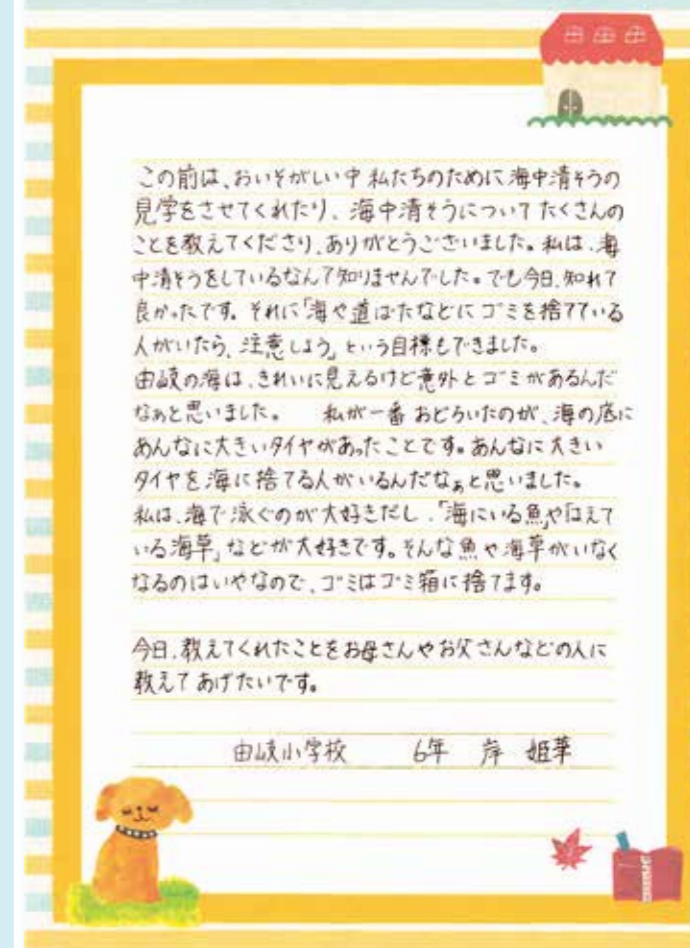 この前は、おいそがしい中私たちのために海中清そうの
見学をさせてくれたり、海中清そうについてたくさんの
ことを教えてくださり、ありがとうございました。私は、海
中清そうをしているなんて知りませんでした。でも今日、知れて
良かったです。それに「海や道ばたなどにゴミを捨てている
人がいたら、注意しよう」という目標もできました。
由岐の海は、きれいに見えるけど意外とゴミがあるんだ
なぁと思いました。 私が一番おどろいたのが、海の底に
あんなに大きいタイヤがあったことです。あんなに大きい
タイヤを海に捨てる人がいるんだなぁと思いました。
私は、海で泳ぐのが大好きだし、「海にいる魚」や「はえて
いる海草」などが大好きです。そんな魚や海草がいなく
なるのはいやなので、ゴミはゴミ箱に捨てます。
今日、教えてくれたことをお母さんやお父さんなどの人に
教えてあげたいです。
由岐小学校 6年 岸 姫華